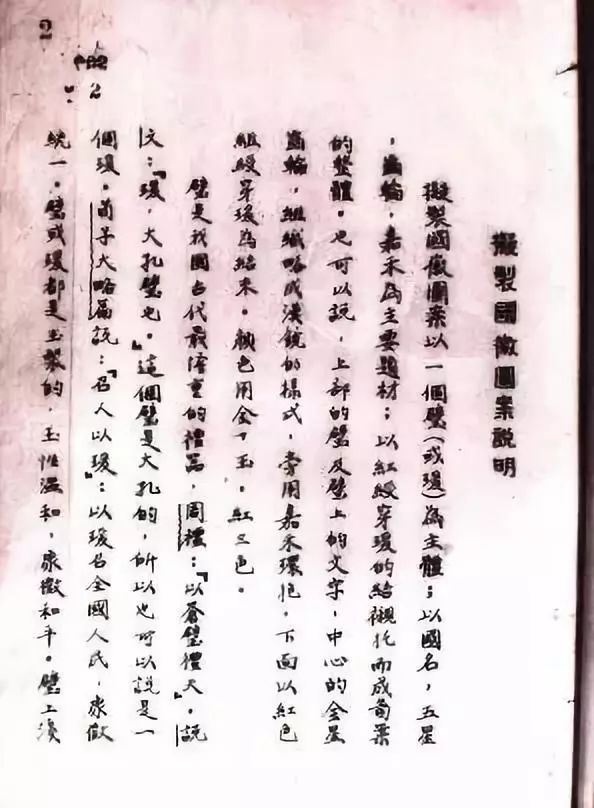 2
2
擬製國徽圖案說明
擬製國徽圖案以一個璧(或瑗)為主體；以國名，五星
，齒輪，嘉禾為主要題材；以紅綬穿瑗的結襯托而成圖案
的整體。也可以說，上部的璧及璧上的文字，中心的金星
齒輪，組織略成漢鏡的樣式，旁用嘉禾環抱，下面以紅色
組綬穿瑗為結束。顏色用金、玉、紅三色。
璧是我國古代最隆重的禮器，周禮：「以蒼璧禮天」。說
文：「瑗，大孔璧也。」這個璧是大孔的，所以也可以說是一
個瑗。荀子大略篇說：「召人以瑗」：以瑗召全國人民，象徵
統一。璧或瑗都是玉製的，玉性溫和，象徵和平。璧上淺